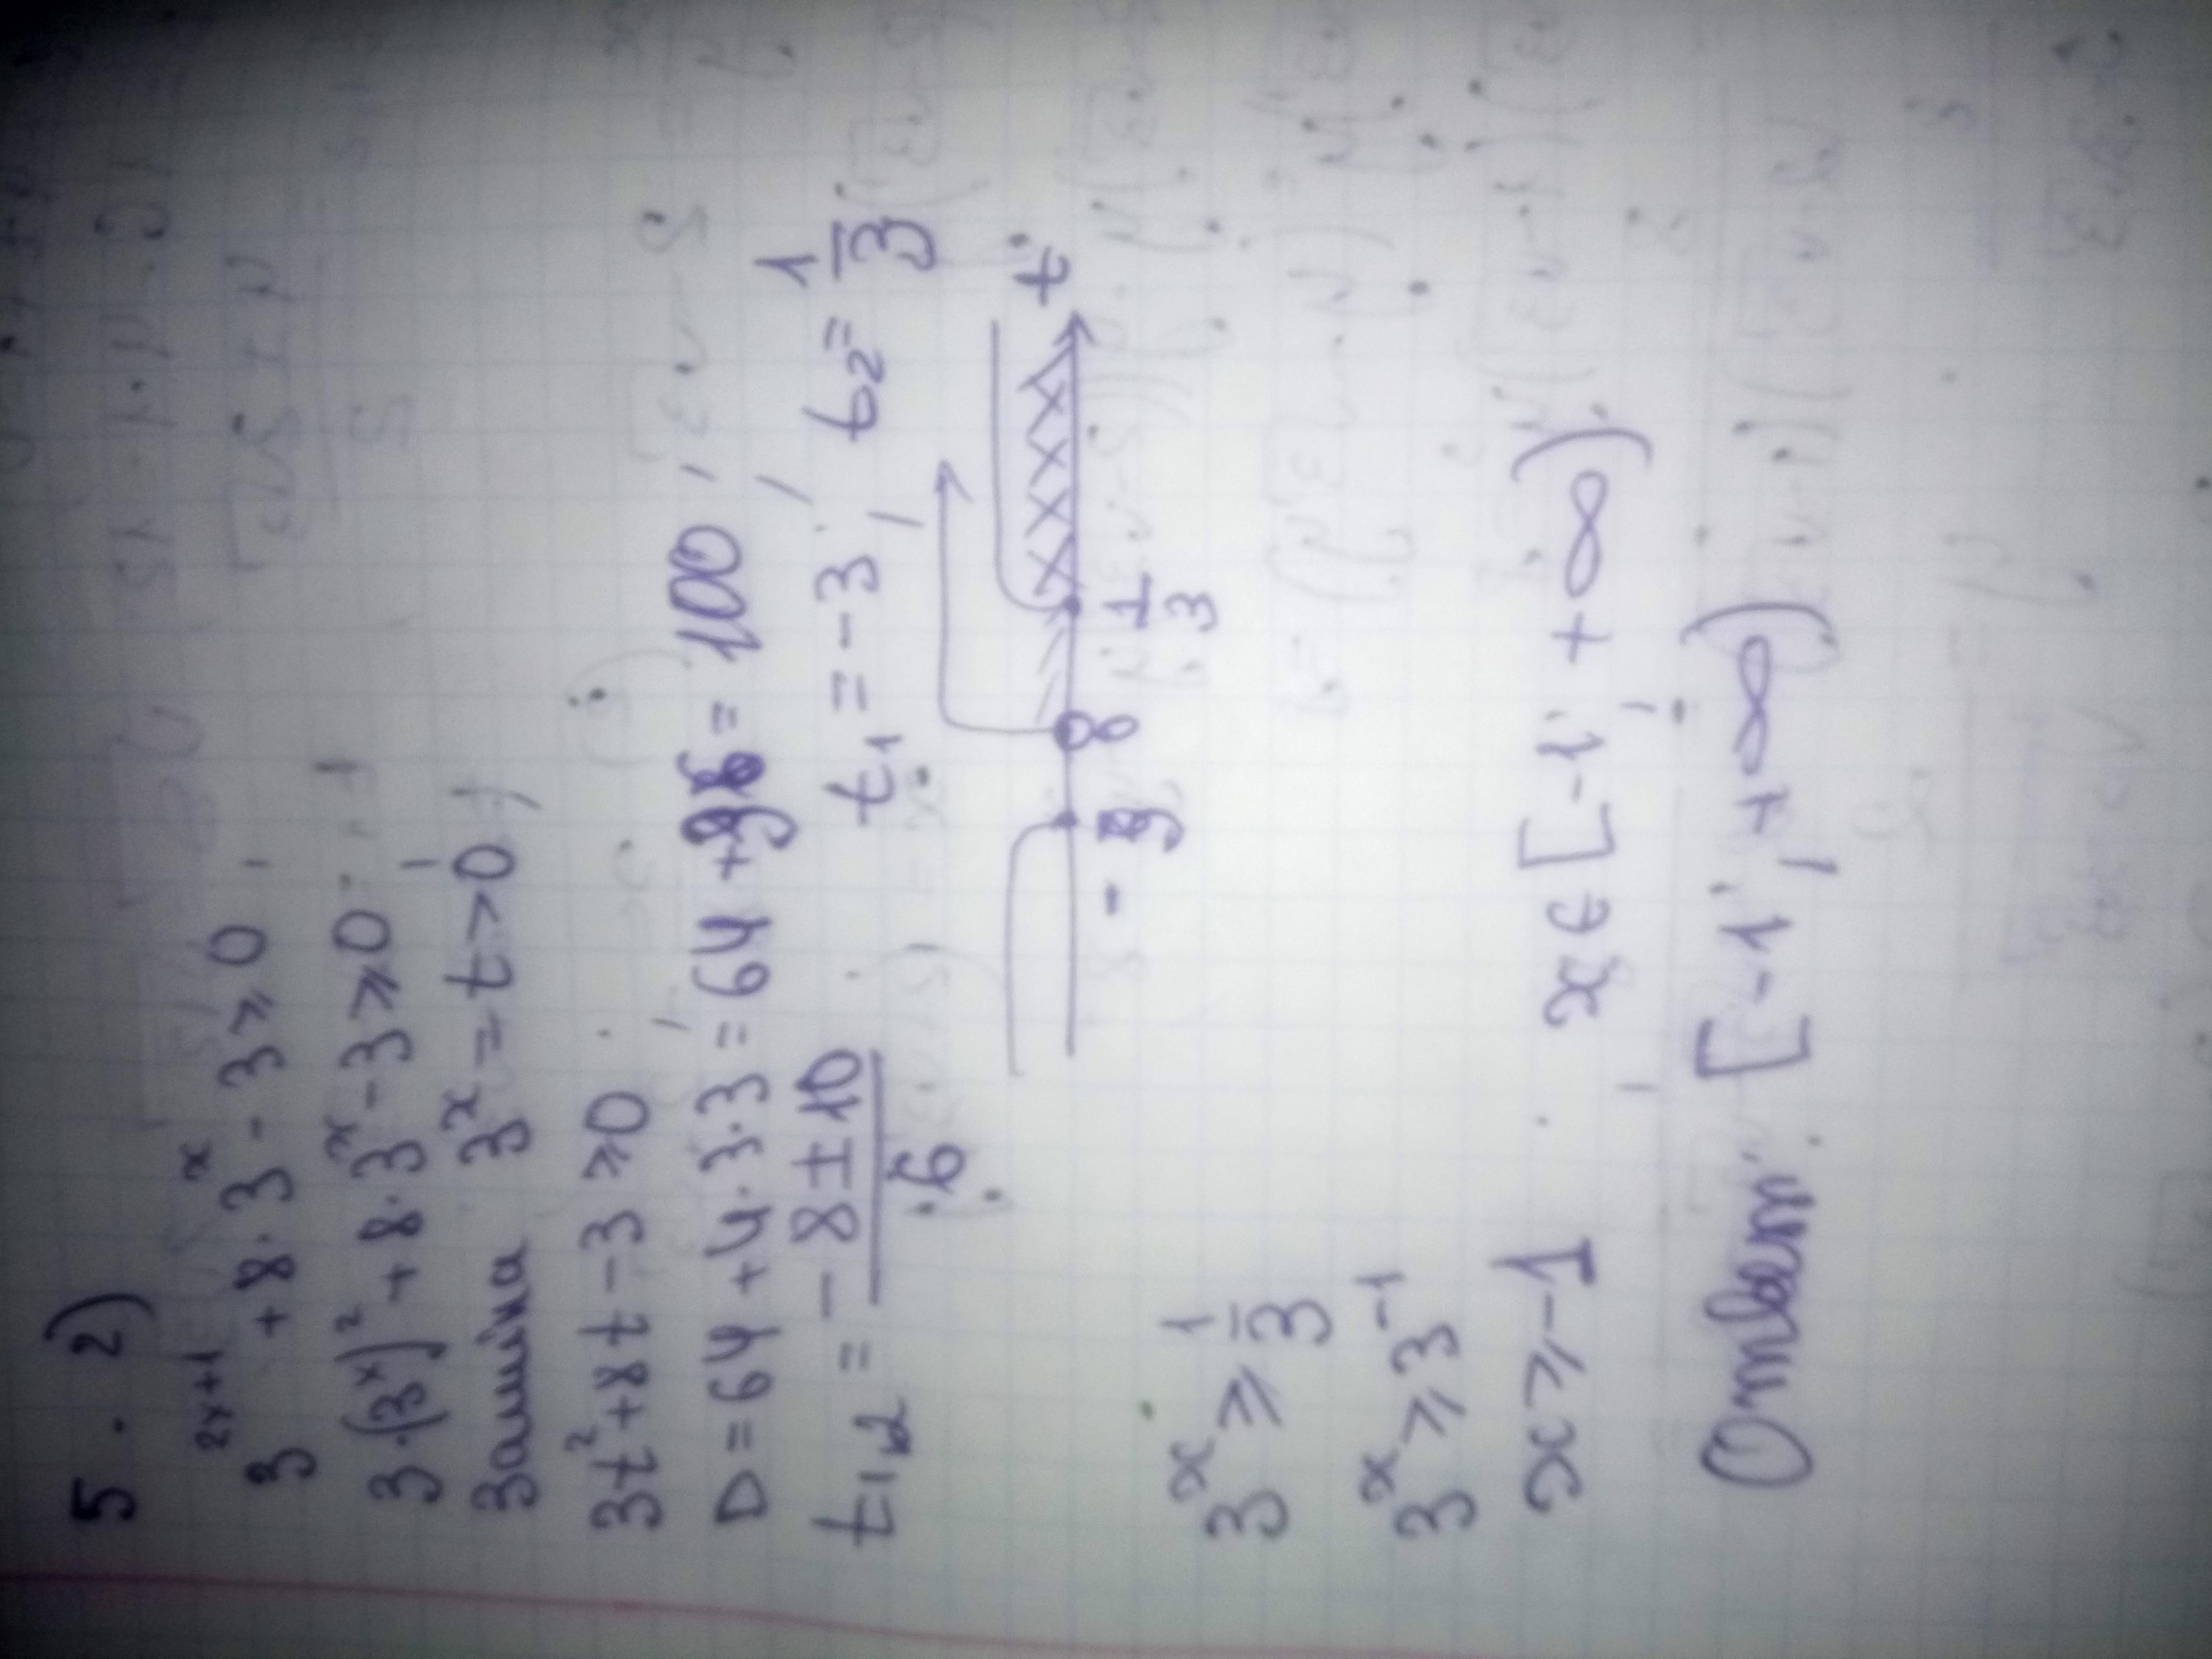 5. 2)
3^{2x+1} + 8·3^x - 3 ≥ 0
3·(3^x)^2 + 8·3^x - 3 ≥ 0
Заміна 3^x = t > 0
3t^2 + 8t - 3 ≥ 0
D = 64 + 4·3·3 = 64 + 36 = 100
t_{1,2} = \frac{-8 ± 10}{6} t_1 = -3, t_2 = \frac{1}{3}
-3 0 \frac{1}{3} t
3^x ≥ \frac{1}{3}
3^x ≥ 3^{-1}
x ≥ -1 x ∈ [-1, +∞)
Ответ: [-1, +∞)